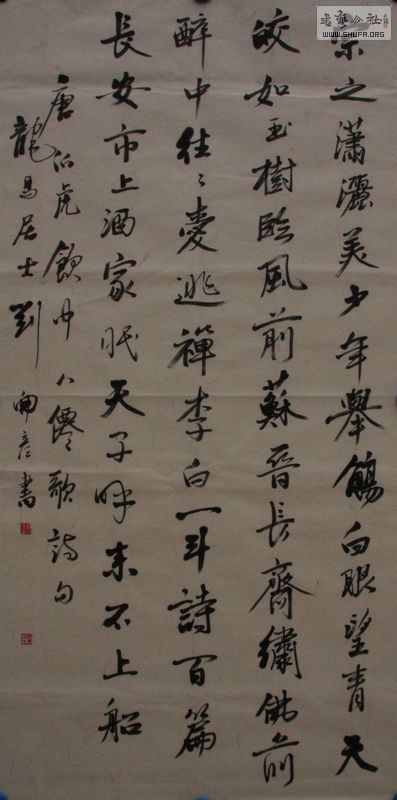 宗之瀟灑美少年舉觴白眼望青天
皎如玉樹臨風前蘇晉長齋繡佛前
醉中往々愛逃禪李白一斗詩百篇
長安市上酒家眠天子呼来不上船
唐伯虎飲中八僊歌詩句
龍馬居士劉彦書
公社
WWW.SHUFA.ORG